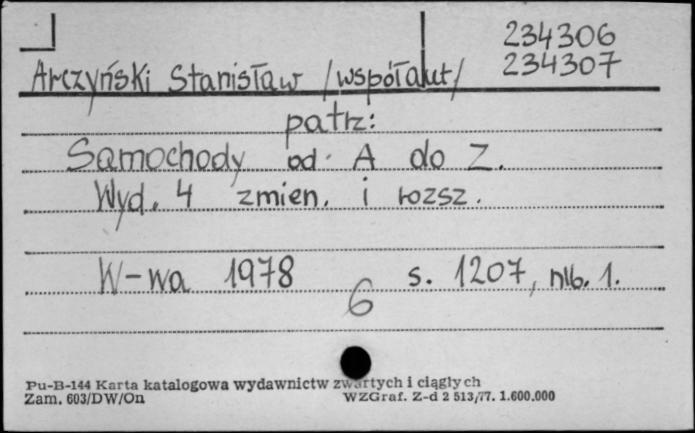 234306
Arczyński Stanisław /współaut/ 234307
patrz:
Samochody od A do Z.
Wyd. 4 zmien. i rozsz.
W-wa 1978 s. 1207, nlb. 1.
6
Pu-B-144 Karta katalogowa wydawnictw zwartych i ciągłych
Zam. 603/DW/On WZGraf. Z-d 2 513/77. 1.600.000